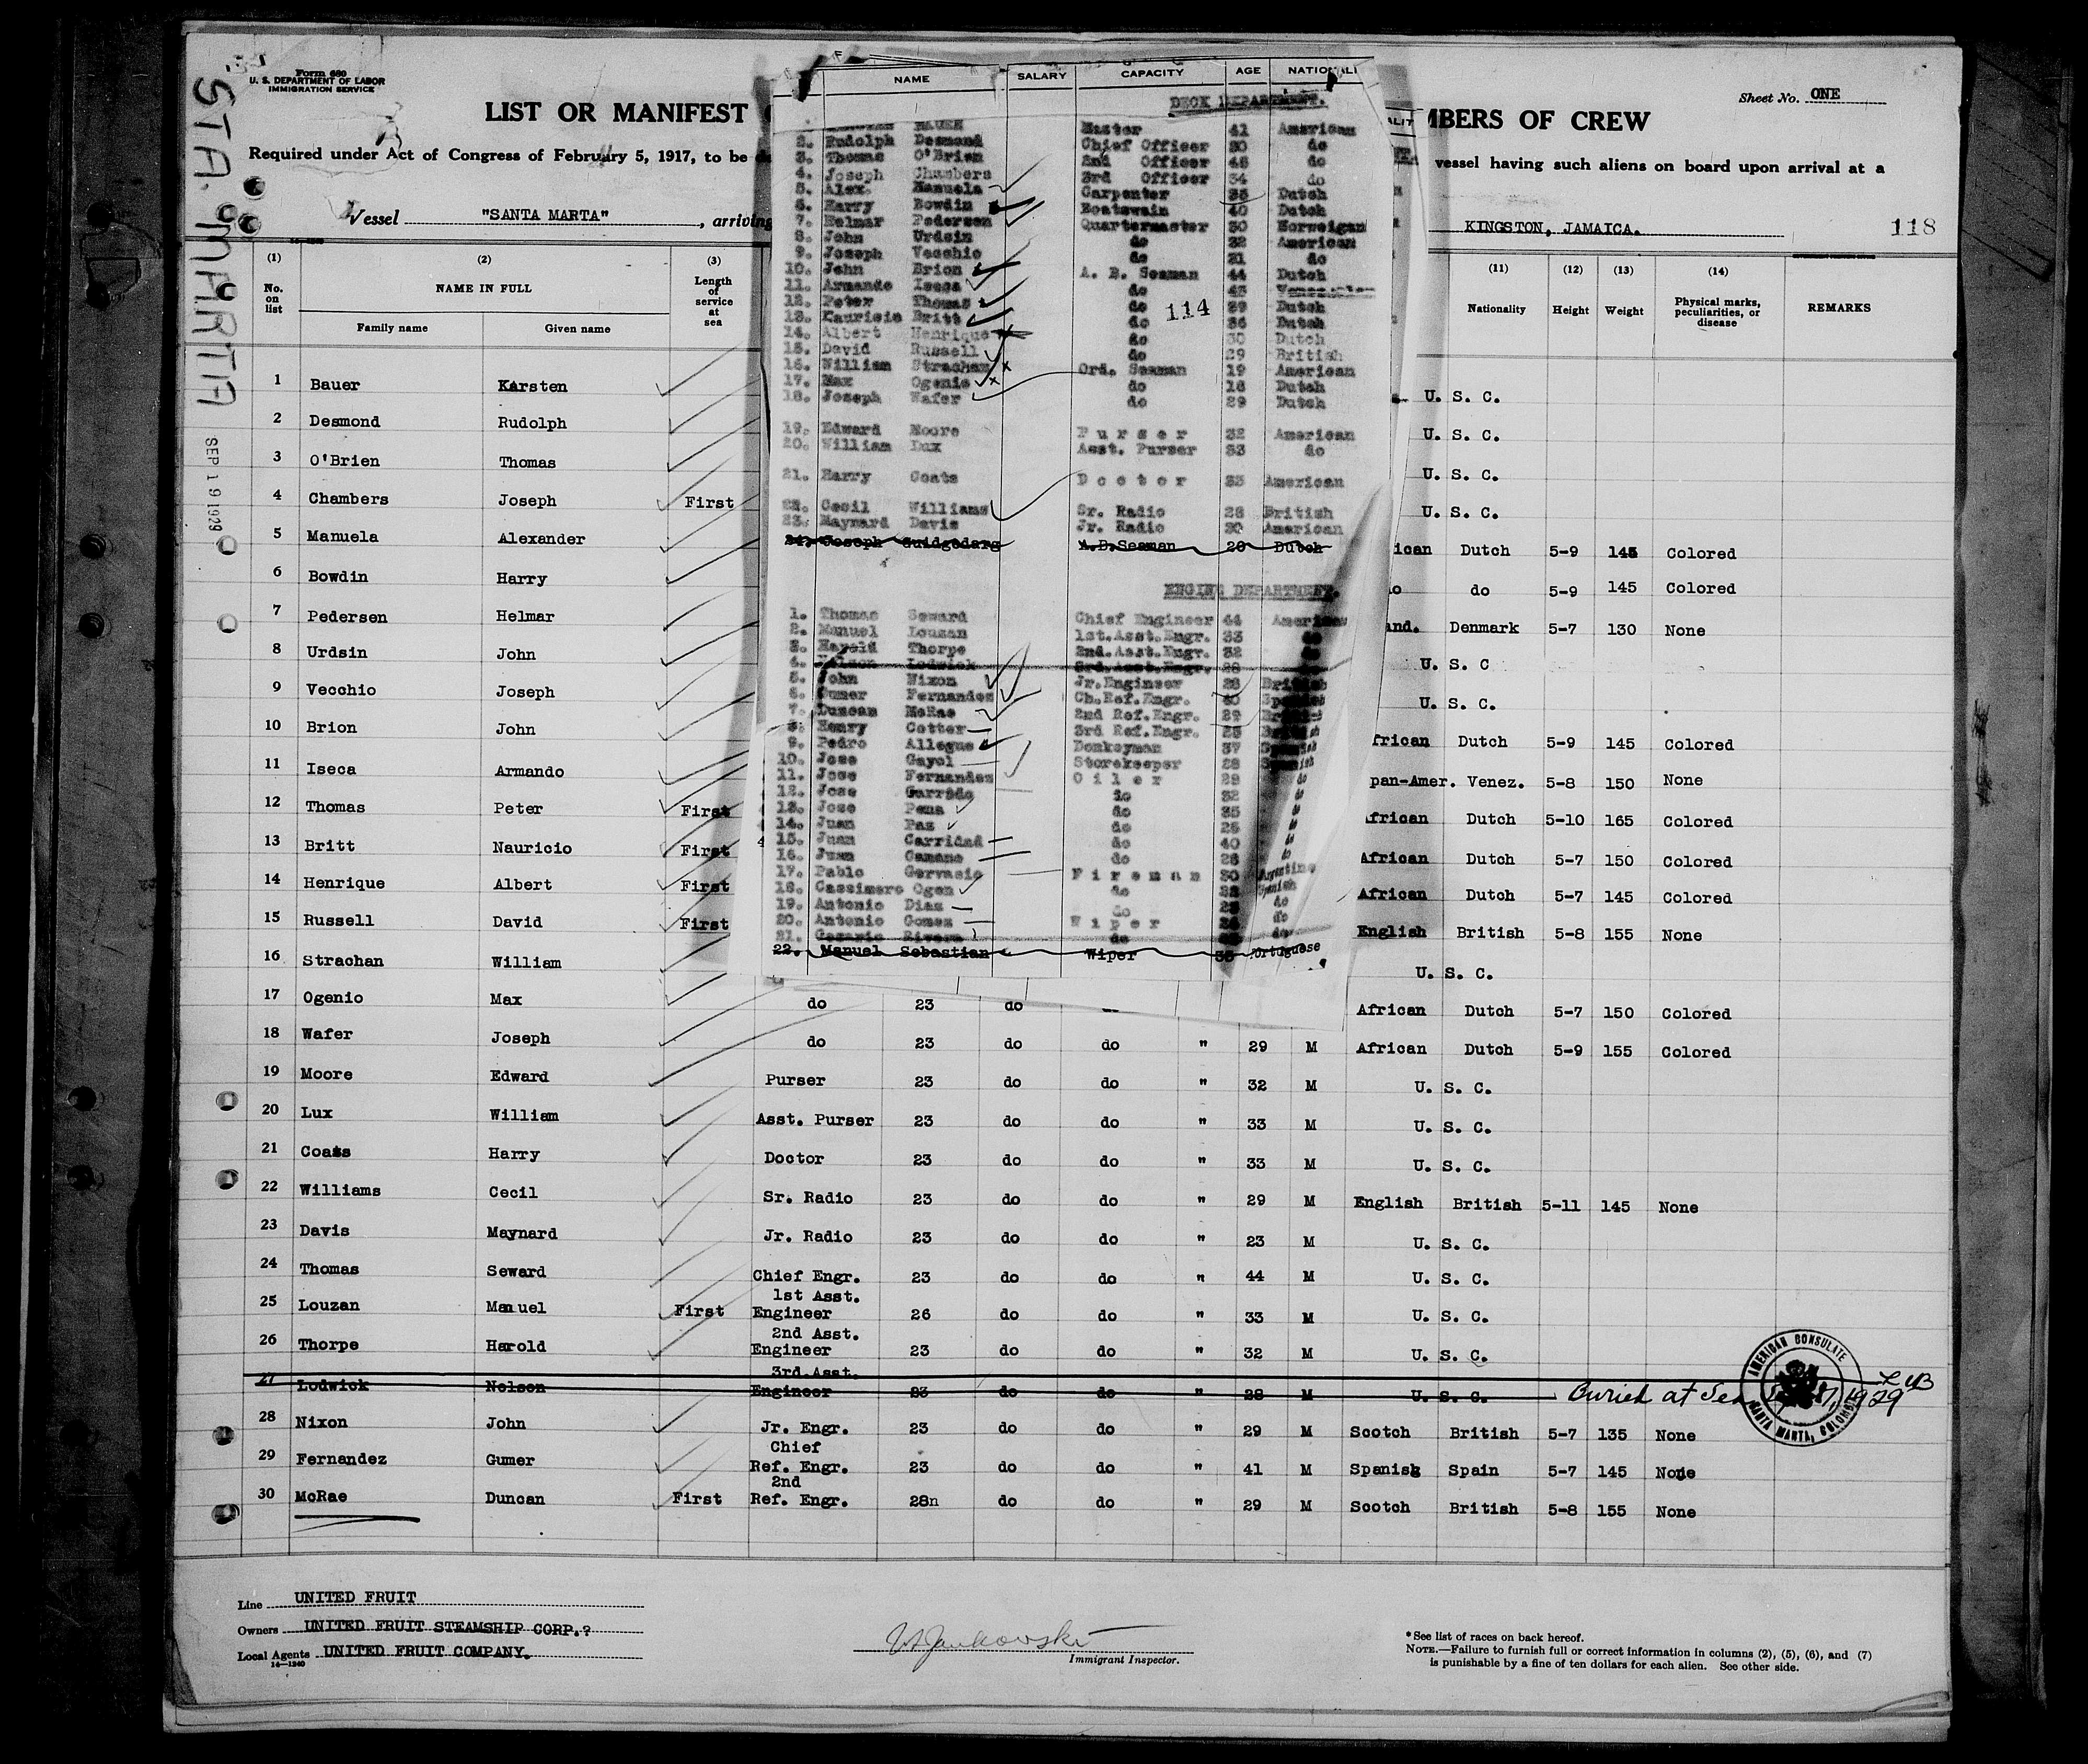 Form 680
U. S. DEPARTMENT OF LABOR
IMMIGRATION SERVICE
STA. MARTA
SEP 19 1929
Sheet No. ONE
LIST OR MANIFEST
MBERS OF CREW
Required under Act of Congress of February 5, 1917, to be
vessel having such aliens on board upon arrival at a
Vessel "SANTA MARTA", arriving
KINGSTON, JAMAICA.
118
(1) (2) (3) (11) (12) (13) (14)
No. on list NAME IN FULL Length of service at sea Nationality Height Weight Physical marks, peculiarities, or disease REMARKS
Family name Given name
1 Bauer Karsten U. S. C.
2 Desmond Rudolph U. S. C.
3 O'Brien Thomas U. S. C.
4 Chambers Joseph First U. S. C.
5 Manuela Alexander ican Dutch 5-9 145 Colored
6 Bowdin Harry do 5-9 145 Colored
7 Pedersen Helmar and. Denmark 5-7 130 None
8 Urdsin John U. S. C
9 Vecchio Joseph U. S. C.
10 Brion John frican Dutch 5-9 145 Colored
11 Iseca Armando pan-Amer. Venez. 5-8 150 None
12 Thomas Peter First frican Dutch 5-10 165 Colored
13 Britt Nauricio First African Dutch 5-7 150 Colored
14 Henrique Albert First African Dutch 5-7 145 Colored
15 Russell David First English British 5-8 155 None
16 Strachan William U. S. C.
17 Ogenio Max do 23 do African Dutch 5-7 150 Colored
18 Wafer Joseph do 23 do do " 29 M African Dutch 5-9 155 Colored
19 Moore Edward Purser 23 do do " 32 M U. S. C.
20 Lux William Asst. Purser 23 do do " 33 M U. S. C.
21 Coats Harry Doctor 23 do do " 33 M U. S. C.
22 Williams Cecil Sr. Radio 23 do do " 29 M English British 5-11 145 None
23 Davis Maynard Jr. Radio 23 do do " 23 M U. S. C.
24 Thomas Seward Chief Engr. 23 do do " 44 M U. S. C.
25 Louzan Manuel First 1st Asst. Engineer 26 do do " 33 M U. S. C.
26 Thorpe Harold 2nd Asst. Engineer 23 do do " 32 M U. S. C.
27 Lodwick Nelson 3rd.Asst. Engineer 23 do do " 28 M U. S. C. Buried at Sea 1929
28 Nixon John Jr. Engr. 23 do do " 29 M Scotch British 5-7 135 None
29 Fernandez Gumer Chief Ref. Engr. 23 do do " 41 M Spanish Spain 5-7 145 None
30 McRae Duncan First 2nd Ref. Engr. 28n do do " 29 M Scotch British 5-8 155 None
AMERICAN CONSULATE
SANTA MARTA, COLOMBIA
NAME SALARY CAPACITY AGE NATIONALI
DECK DEPARTMENT.
BAUER Master 41 American
2. Rudolph Desmond Chief Officer 30 do
3. Thomas O'Brien 2nd Officer 45 do
4. Joseph Chambers 3rd Officer 34 do
5. Alex. Manuela Carpenter 35 Dutch
6. Harry Bowdin Boatswain 40 Dutch
7. Helmar Pedersen Quartermaster 30 Norweigan
8. John Urdsin do 32 American
9. Joseph Vecchio do 21 do
10. John Brion A. B. Seaman 44 Dutch
11. Armando Iseca do 45 Venezuelan
12. Peter Thomas do 29 Dutch
114
13. Mauricio Britt do 36 Dutch
14. Albert Henrique do 30 Dutch
15. David Russell do 29 British
16. William Strachan Ord. Seaman 19 American
17. Max Ogenio do 18 Dutch
18. Joseph Wafer do 29 Dutch
19. Edward Moore Purser 32 American
20. William Lux Asst. Purser 33 do
21. Harry Coats Doctor 33 American
22. Cecil Williams Sr. Radio 28 British
23. Maynard Davis Jr. Radio American
24. Joseph Guidgedarg A.B.Seaman 20 Dutch
ENGINE DEPARTMENT.
1. Thomas Seward Chief Engineer 44 American
2. Manuel Louzan 1st.Asst.Engr. 33 do
3. Harold Thorpe 2nd.Asst.Engr. 32 do
4. Nelson Lodwick 3rd.Asst.Engr. 28
5. John Nixon Jr.Engineer 28 British
6. Gumer Fernandez Ch.Ref.Engr. 40 Spanish
7. Duncan McRae 2nd Ref.Engr. 29 British
8. Henry Cotter 3rd Ref.Engr. 25 British
9. Pedro Allegue Donkeyman 37 Spanish
10. Jose Gayol Storekeeper 28 Spanish
11. Jose Fernandez Oiler 29 do
12. Jose Garrido do 32
13. Jose Pena do 35
14. Juan Paz do 25
15. Juan Carridad do 40
16. Juan Camano do 28 do
17. Pablo Gervasio Fireman 30 Argentine
18. Cassimero Ogen do Spanish
19. Antonio Diaz do do
20. Antonio Gomez Wiper do
21. Rivera do do
22. Manuel Sebastian Wiper 35 Portuguese
Line UNITED FRUIT
Owners UNITED FRUIT STEAMSHIP CORP.?
Local Agents UNITED FRUIT COMPANY.
14—1240
Immigrant Inspector.
* See list of races on back hereof.
NOTE.—Failure to furnish full or correct information in columns (2), (5), (6), and (7)
is punishable by a fine of ten dollars for each alien. See other side.